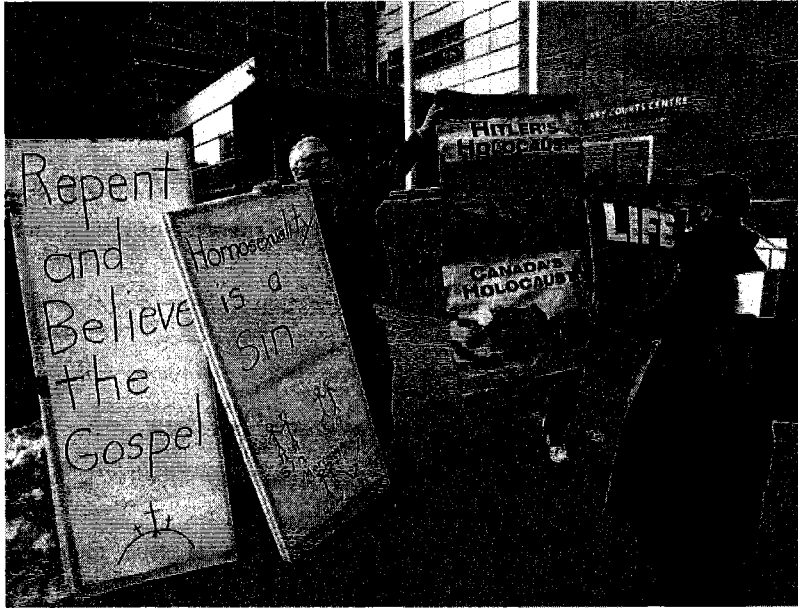 Repent
and
Believe
the
Gospel
Homosexuality
is a
Sin
HITLER'S
HOLOCAUST
CANADA'S
HOLOCAUST
LIFE
COURTS CENTRE